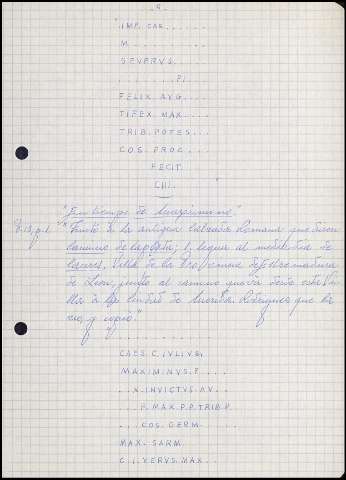 - 9 -
IMP. CAE. . . . . .
M . . . . . . . . . .
SEVERVS . . . .
. . . . . . . PI . . .
FELIX. AVG. . . .
TIFEX. MAX. . . .
TRIB. POTES. . . .
COS. PROC. . . .
FECIT.
CIII. "
"En tiempo de Maximino"
"Junto a la antigua calzada Romana que dicen
camino de la plata; 1 legua al mediodia de
Cazeres, Villa de la Provincia de Estremadura
de Leon, junto al camino que va desde esta Vi
lla a la Ciudad de Merida. Rodriguez que la
vio, y copio."
. . . . . . . . . . .
CAES. C. IVLIVS,
MAXIMINVS. P. . . .
. . X. INVICTVS. AV. . .
. . . P. MAX. P. P. TRIB. P.
. . . COS. GERM. . . . .
MAX. SARM.
C. I. VERVS. MAX. . .